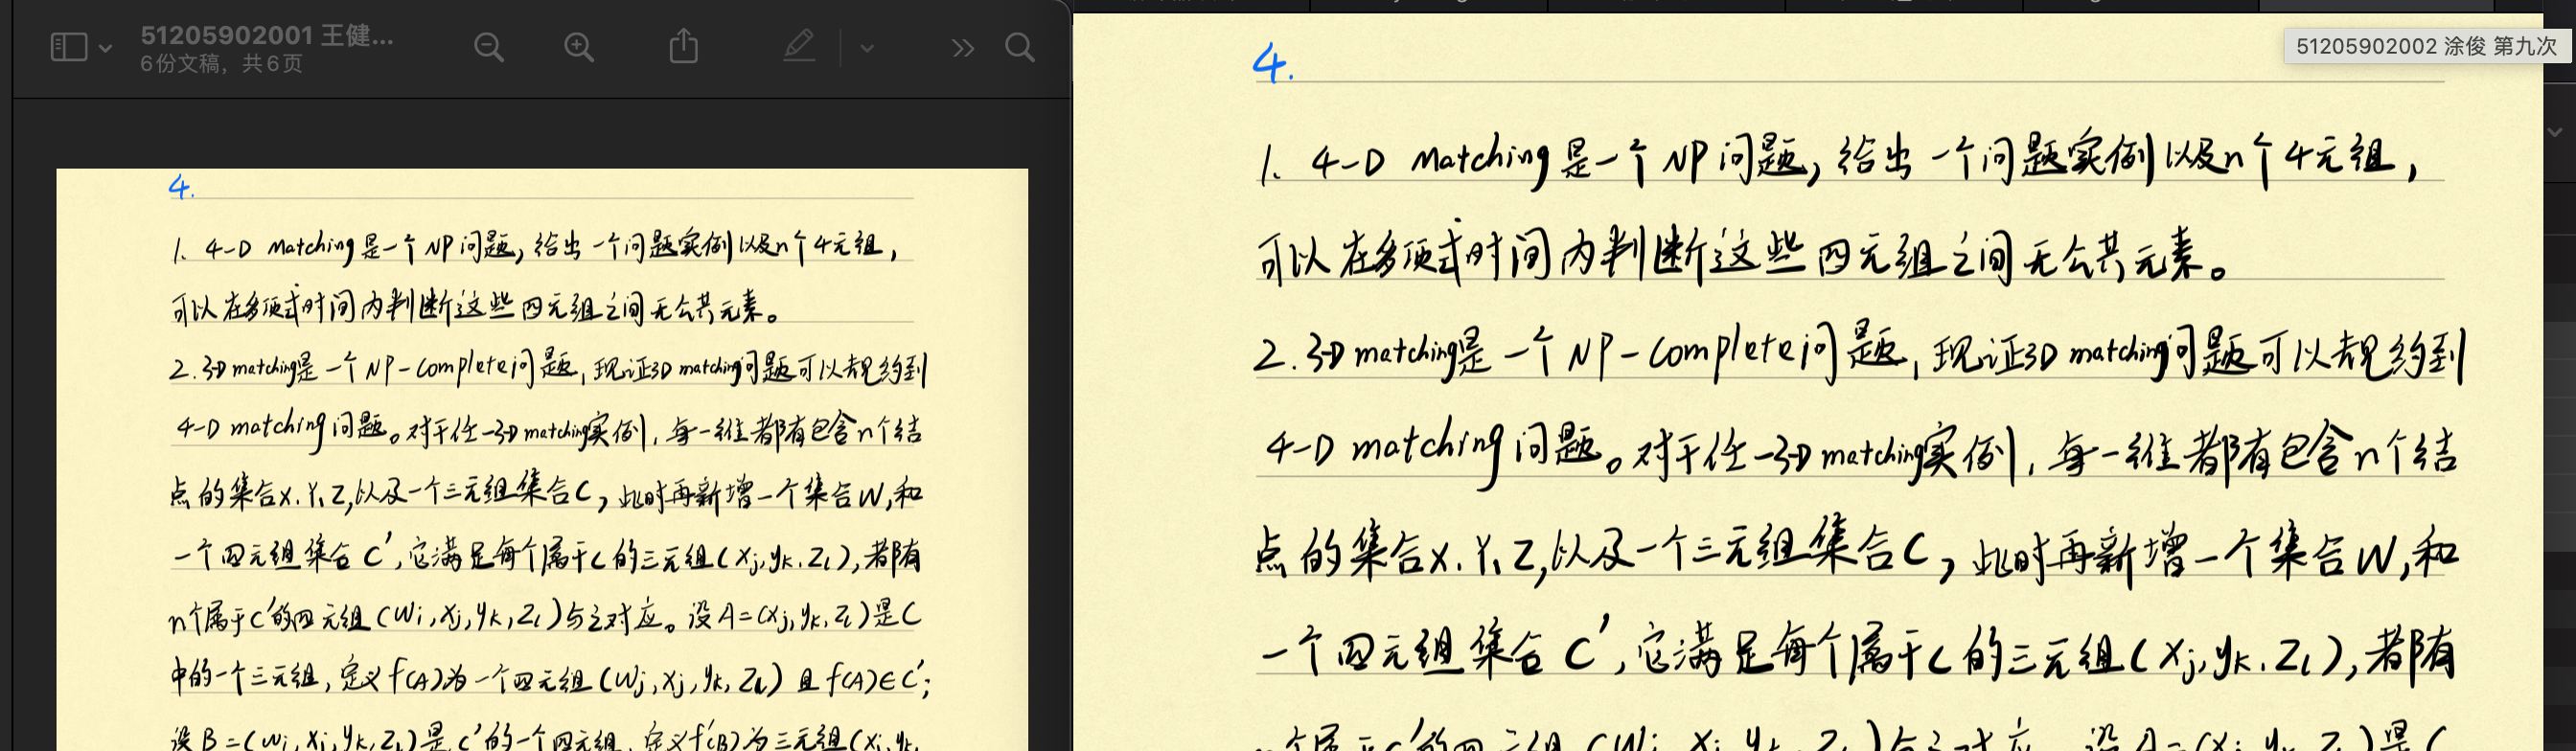 51205902001 王健...
6份文稿，共6页
4.
1. 4-D Matching是一个NP问题，给出一个问题实例以及n个4元组，
可以在多项式时间内判断这些四元组之间无公共元素。
2.3D matching是一个NP-complete问题，现证3D matching问题可以规约到
4-D matching问题。对于任一3D matching实例，每一维都有包含n个结
点的集合X.Y.Z,以及一个三元组集合C，此时再新增一个集合W,和
一个四元组集合C',它满足每个属于C的三元组(xj,yk.zl),都有
n个属于C'的四元组(wi,xj,yk,zl)与之对应。设A=(xj,yk,zl)是C
中的一个三元组,定义f(A)为一个四元组(wj,xj,yk,zl)且f(A)∈C';
设B=(wi,xj,yk,zl)是C'的一个四元组,定义f'(B)为三元组(xj,yk,
51205902002 涂俊 第九次
4.
1. 4-D Matching是一个NP问题，给出一个问题实例以及n个4元组，
可以在多项式时间内判断这些四元组之间无公共元素。
2.3D matching是一个NP-complete问题，现证3D matching问题可以规约到
4-D matching问题。对于任一3D matching实例，每一维都有包含n个结
点的集合X.Y.Z,以及一个三元组集合C，此时再新增一个集合W,和
一个四元组集合C',它满足每个属于C的三元组(xj,yk.zl),都有
n个属于C'的四元组(wi,xj,yk,zl)与之对应。设A=(xj,yk,zl)是C